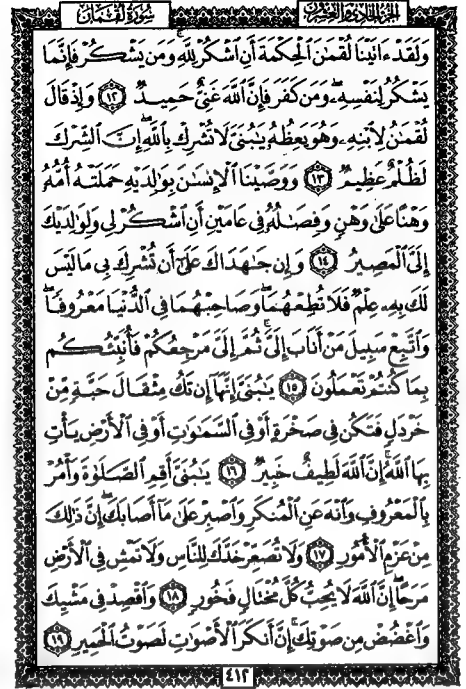 الجزء الحادي والعشرون
سورة لقمان
وَلَقَدْ ءَاتَيْنَا لُقْمَٰنَ ٱلْحِكْمَةَ أَنِ ٱشْكُرْ لِلَّهِ وَمَن يَشْكُرْ فَإِنَّمَا
يَشْكُرُ لِنَفْسِهِۦ وَمَن كَفَرَ فَإِنَّ ٱللَّهَ غَنِىٌّ حَمِيدٌ ١٢ وَإِذْ قَالَ
لُقْمَٰنُ لِٱبْنِهِۦ وَهُوَ يَعِظُهُۥ يَٰبُنَىَّ لَا تُشْرِكْ بِٱللَّهِ إِنَّ ٱلشِّرْكَ
لَظُلْمٌ عَظِيمٌ ١٣ وَوَصَّيْنَا ٱلْإِنسَٰنَ بِوَٰلِدَيْهِ حَمَلَتْهُ أُمُّهُۥ
وَهْنًا عَلَىٰ وَهْنٍ وَفِصَٰلُهُۥ فِى عَامَيْنِ أَنِ ٱشْكُرْ لِى وَلِوَٰلِدَيْكَ
إِلَىَّ ٱلْمَصِيرُ ١٤ وَإِن جَٰهَدَاكَ عَلَىٰٓ أَن تُشْرِكَ بِى مَا لَيْسَ
لَكَ بِهِۦ عِلْمٌ فَلَا تُطِعْهُمَا وَصَاحِبْهُمَا فِى ٱلدُّنْيَا مَعْرُوفًا
وَٱتَّبِعْ سَبِيلَ مَنْ أَنَابَ إِلَىَّ ثُمَّ إِلَىَّ مَرْجِعُكُمْ فَأُنَبِّئُكُم
بِمَا كُنتُمْ تَعْمَلُونَ ١٥ يَٰبُنَىَّ إِنَّهَآ إِن تَكُ مِثْقَالَ حَبَّةٍ مِّنْ
خَرْدَلٍ فَتَكُن فِى صَخْرَةٍ أَوْ فِى ٱلسَّمَٰوَٰتِ أَوْ فِى ٱلْأَرْضِ يَأْتِ
بِهَا ٱللَّهُ إِنَّ ٱللَّهَ لَطِيفٌ خَبِيرٌ ١٦ يَٰبُنَىَّ أَقِمِ ٱلصَّلَوٰةَ وَأْمُرْ
بِٱلْمَعْرُوفِ وَٱنْهَ عَنِ ٱلْمُنكَرِ وَٱصْبِرْ عَلَىٰ مَآ أَصَابَكَ إِنَّ ذَٰلِكَ
مِنْ عَزْمِ ٱلْأُمُورِ ١٧ وَلَا تُصَعِّرْ خَدَّكَ لِلنَّاسِ وَلَا تَمْشِ فِى ٱلْأَرْضِ
مَرَحًا إِنَّ ٱللَّهَ لَا يُحِبُّ كُلَّ مُخْتَالٍ فَخُورٍ ١٨ وَٱقْصِدْ فِى مَشْيِكَ
وَٱغْضُضْ مِن صَوْتِكَ إِنَّ أَنكَرَ ٱلْأَصْوَٰتِ لَصَوْتُ ٱلْحَمِيرِ ١٩
٤١٢